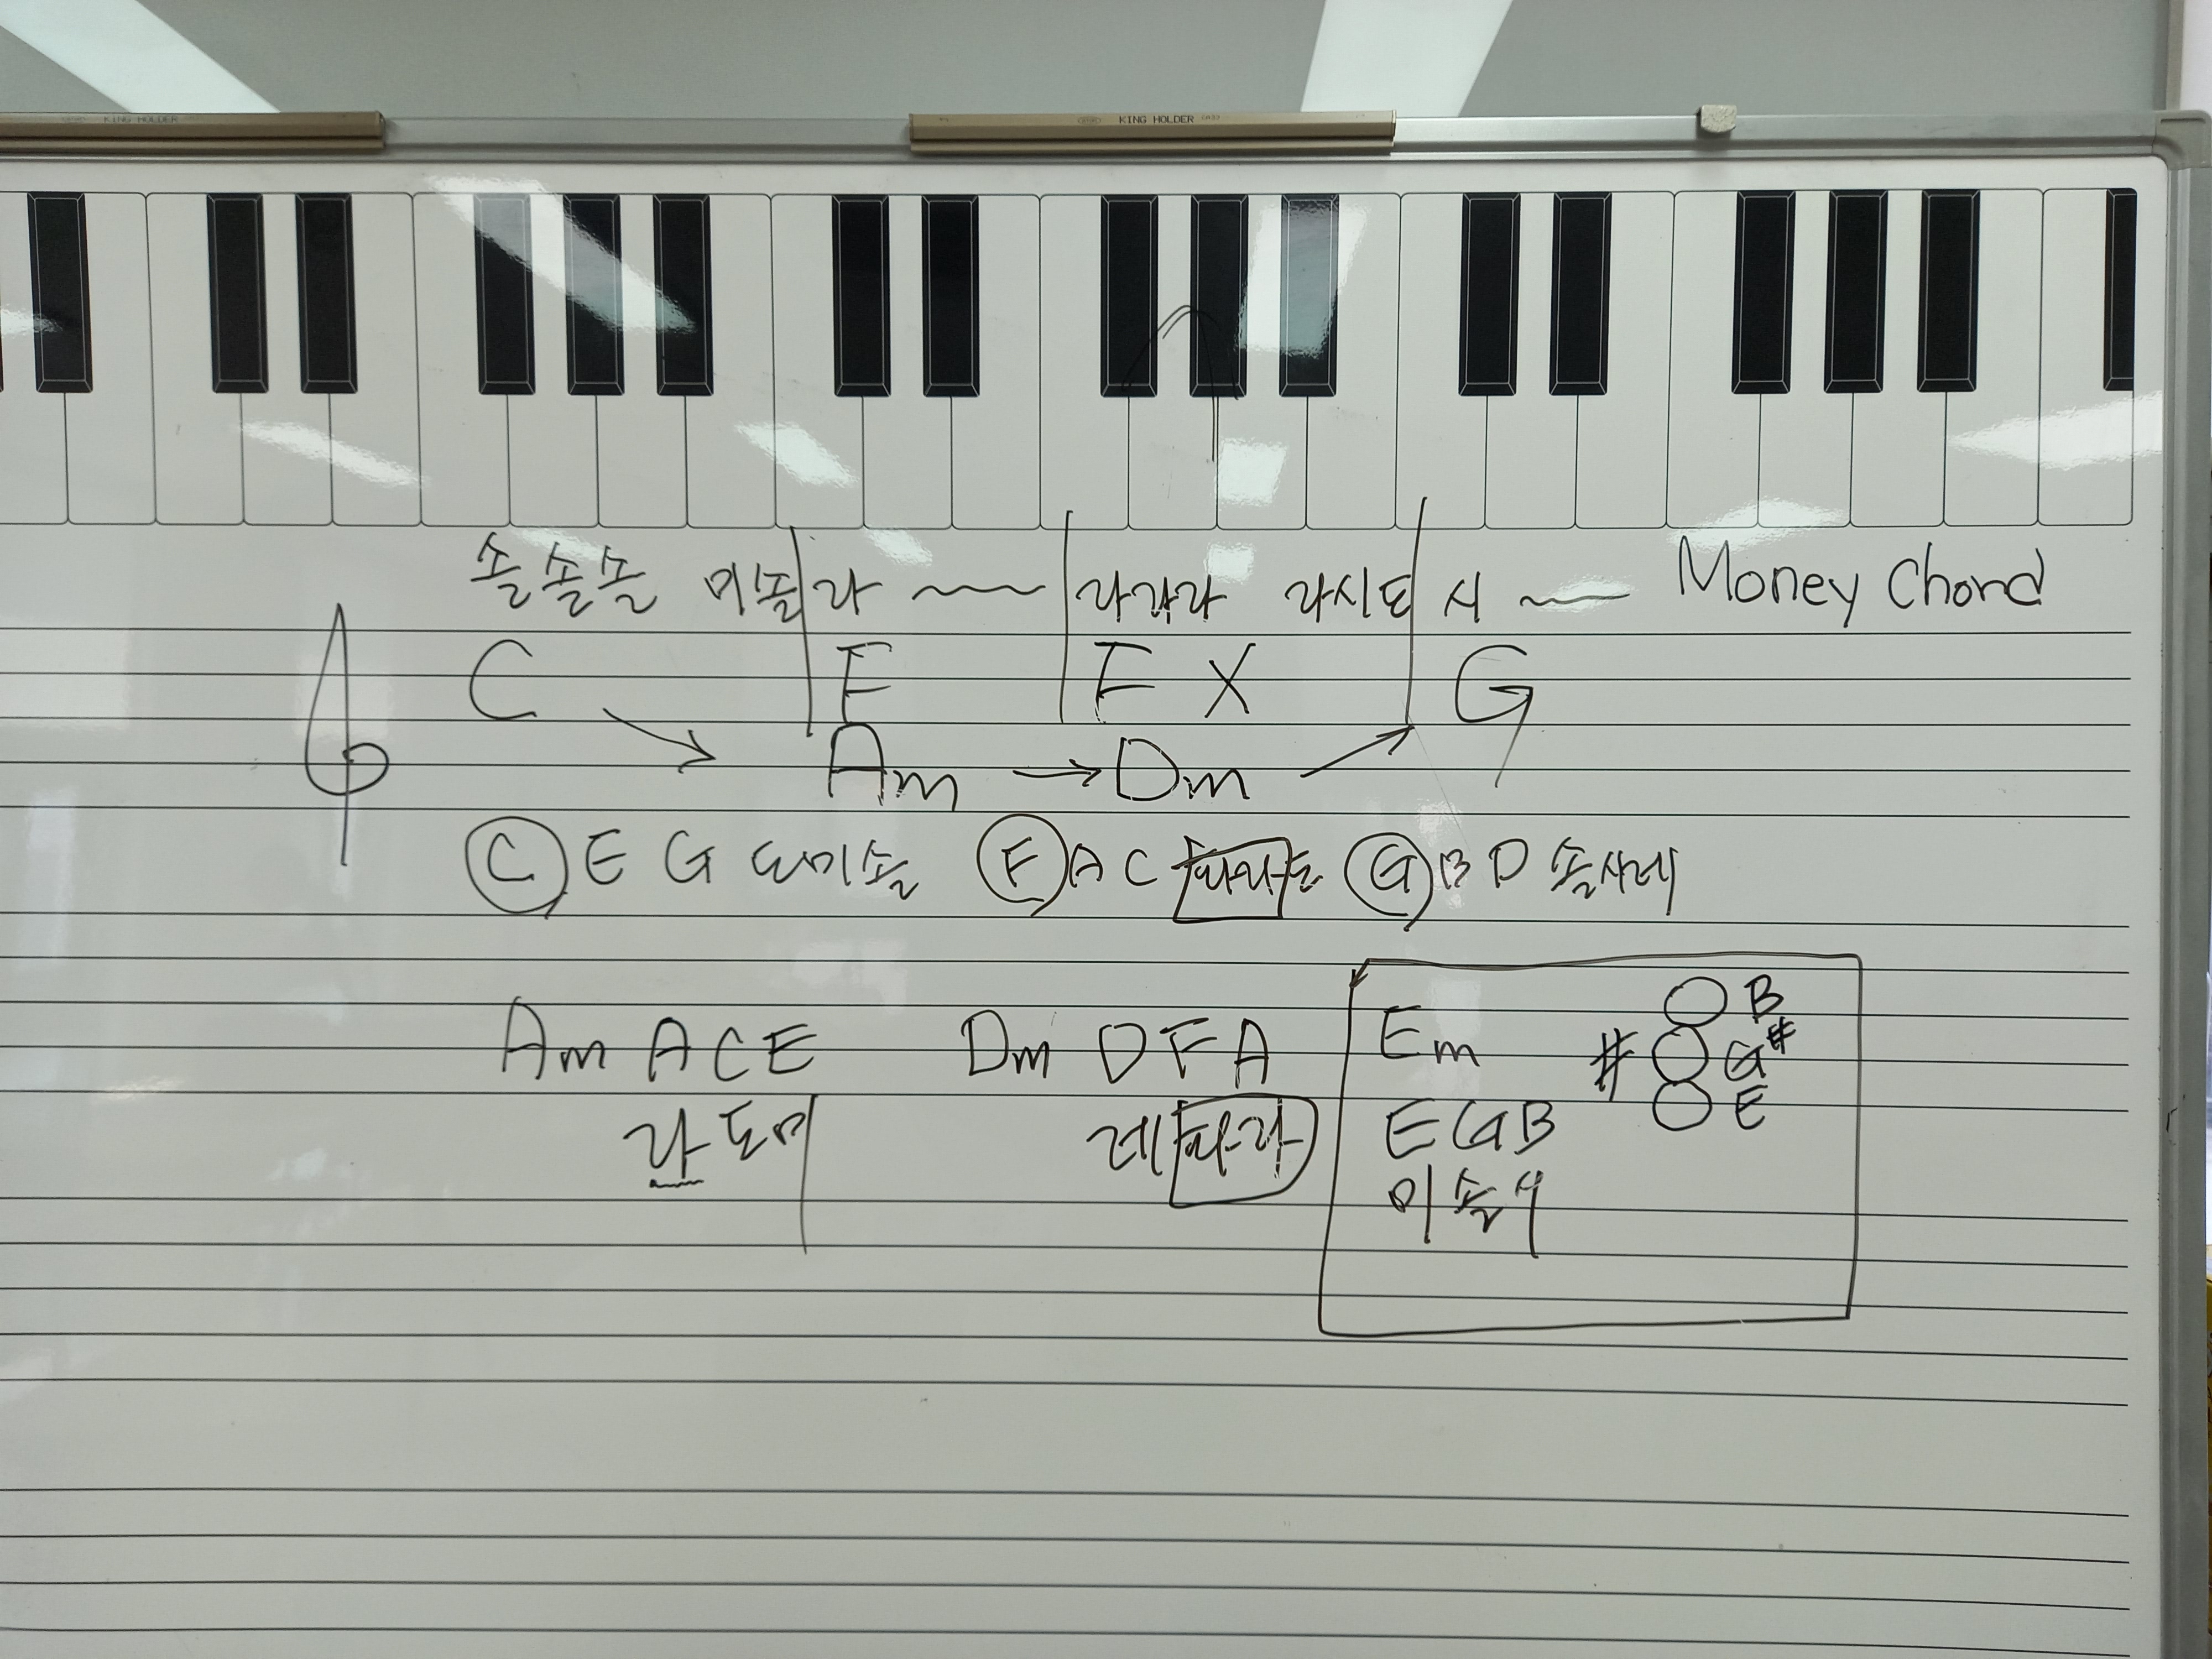 KING HOLDER
KING HOLDER
솔솔솔 미솔 라 라라라 라시도 시 Money Chord
C F F X G
Am → Dm
C E G 도미솔 F A C 파라도 G B D 솔시레
Am A C E Dm D F A Em # B G# E
라도미 레파라 E G B
미솔시